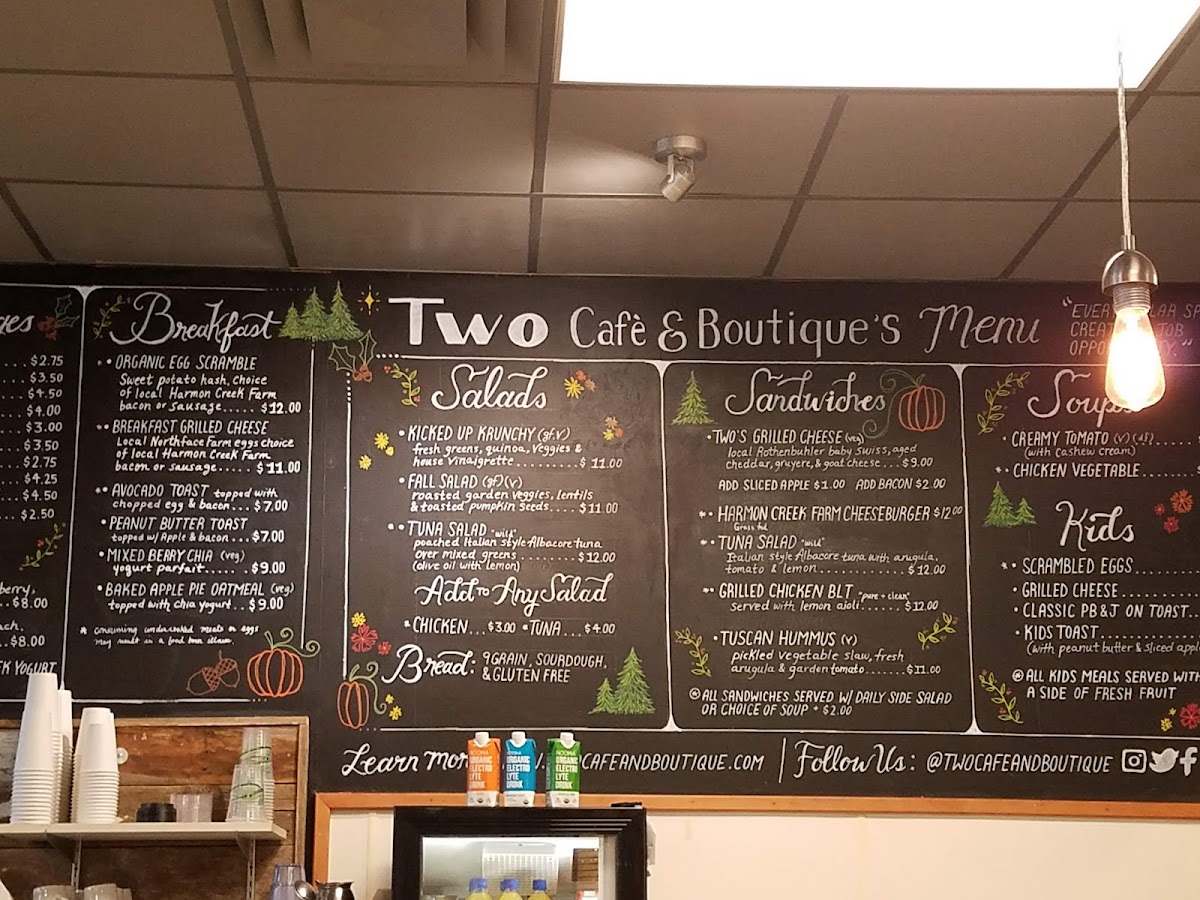 ges
... $2.75
... $3.50
... $4.50
... $4.00
... $3.00
... $3.50
... $2.75
... $4.25
... $4.50
... $2.50
berry,
.. $8.00
ach,
.. $8.00
EK YOGURT
Breakfast
*• ORGANIC EGG SCRAMBLE
Sweet potato hash, choice
of local Harmon Creek Farm
bacon or sausage..... $12.00
*• BREAKFAST GRILLED CHEESE
Local Northface Farm eggs choice
of local Harmon Creek Farm
bacon or sausage..... $11.00
*• AVOCADO TOAST topped with
chopped egg & bacon... $7.00
• PEANUT BUTTER TOAST
topped w/ Apple & bacon... $7.00
• MIXED BERRY CHIA (veg)
yogurt parfait..... $9.00
• BAKED APPLE PIE OATMEAL (veg)
topped with chia yogurt.. $9.00
* consuming undercooked meats or eggs
may result in a food borne illness
TWO Cafè & Boutique's Menu
Salads
• KICKED UP KRUNCHY (gf.v)
fresh greens, quinoa, veggies &
house vinaigrette.......... $11.00
• FALL SALAD (gf)(v)
roasted garden veggies, lentils
& toasted pumpkin seeds.... $11.00
*• TUNA SALAD "wild"
poached Italian Style Albacore tuna
over mixed greens......... $12.00
(olive oil with lemon)
Add to Any Salad
• CHICKEN...$3.00 • TUNA... $4.00
Bread: 9 GRAIN, SOURDOUGH,
& GLUTEN FREE
Sandwiches
• TWO'S GRILLED CHEESE (veg)
local Rothenbuhler baby swiss, aged
cheddar, gruyere, & goat cheese... $9.00
ADD SLICED APPLE $1.00 ADD BACON $2.00
*• HARMON CREEK FARM CHEESEBURGER $12.00
Grass fed
*• TUNA SALAD "wild"
Italian style Albacore tuna with arugula,
tomato & lemon............ $12.00
*• GRILLED CHICKEN BLT "pure + clean"
served with lemon aioli..... $12.00
• TUSCAN HUMMUS (v)
pickled vegetable slaw, fresh
arugula & garden tomato...... $11.00
* ALL SANDWICHES SERVED W/ DAILY SIDE SALAD
OR CHOICE OF SOUP + $2.00
"EVERY
CREAT
JOB
OPPO
Soups
• CREAMY TOMATO (v) (gf)
(with cashew cream)
*• CHICKEN VEGETABLE.......
Kids
*• SCRAMBLED EGGS.......
• GRILLED CHEESE.......
• CLASSIC PB & J ON TOAST..
• KIDS TOAST............
(with peanut butter & sliced apple
@ ALL KIDS MEALS SERVED WITH
A SIDE OF FRESH FRUIT
Learn mor
CAFEANDBOUTIQUE.COM
Follow Us: @TWOCAFEANDBOUTIQUE
NOOMA
ORGANIC
ELECTRO
LYTE
DRINK
NOOMA
ORGANIC
ELECTRO
LYTE
DRINK
NOOMA
ORGANIC
ELECTRO
LYTE
DRINK